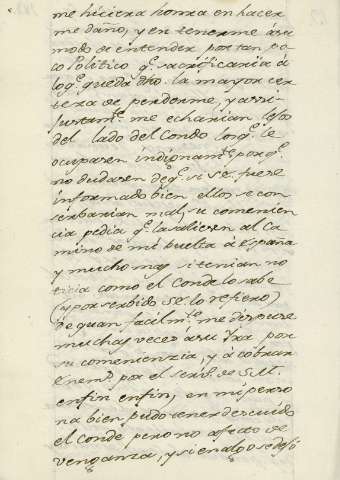 me hiciera honra en hacer
me daño, y en tenerme a su
modo de entender por tan po
co Politico q.e sacrificaria à
lo q.e queda dho. la mayor cer
teza de perderme, y assi-
justam.te me echarian lejos
del lado del Conde los q.e le
ocupasen indignam.te por q.e
no dudasen de q.e si S.E. fuese
informado bien ellos se con
serbarian mal, su comenien
cia pedia q.e la saliesen al Ca
mino de mi buelta à España
y mucho mas si tenian no
ticia como el Conde lo sabe
(y por serbido se lo refiero)
de quan facilm.te me dispuse
muchas veces à su Yra por
su comenienzia, y à cobrar
enem.s por el serv.o de S.M.
enfin enfin, en mi perso
na bien pudo tener descuido
el Conde pero no afecto de
venganza, y si en algo se dejó